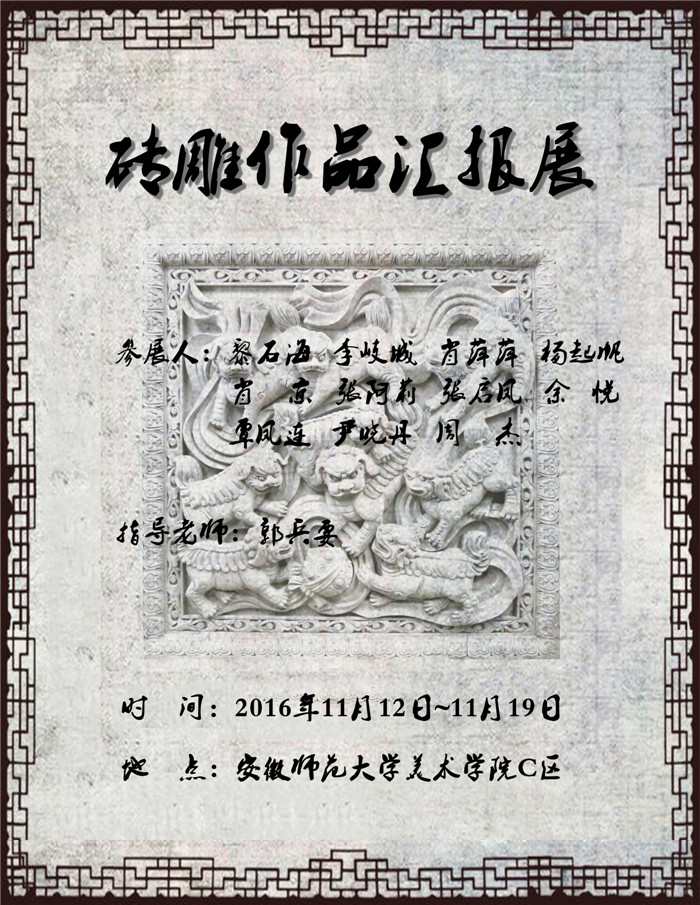 砖雕作品汇报展
参展人：黎石海 李岐城 肖萍萍 杨起帆
肖 京 张阿莉 张启凤 余 悦
覃凤连 尹晓丹 周 杰
指导老师：郭兵要
时 间：2016年11月12日~11月19日
地 点：安徽师范大学美术学院C区